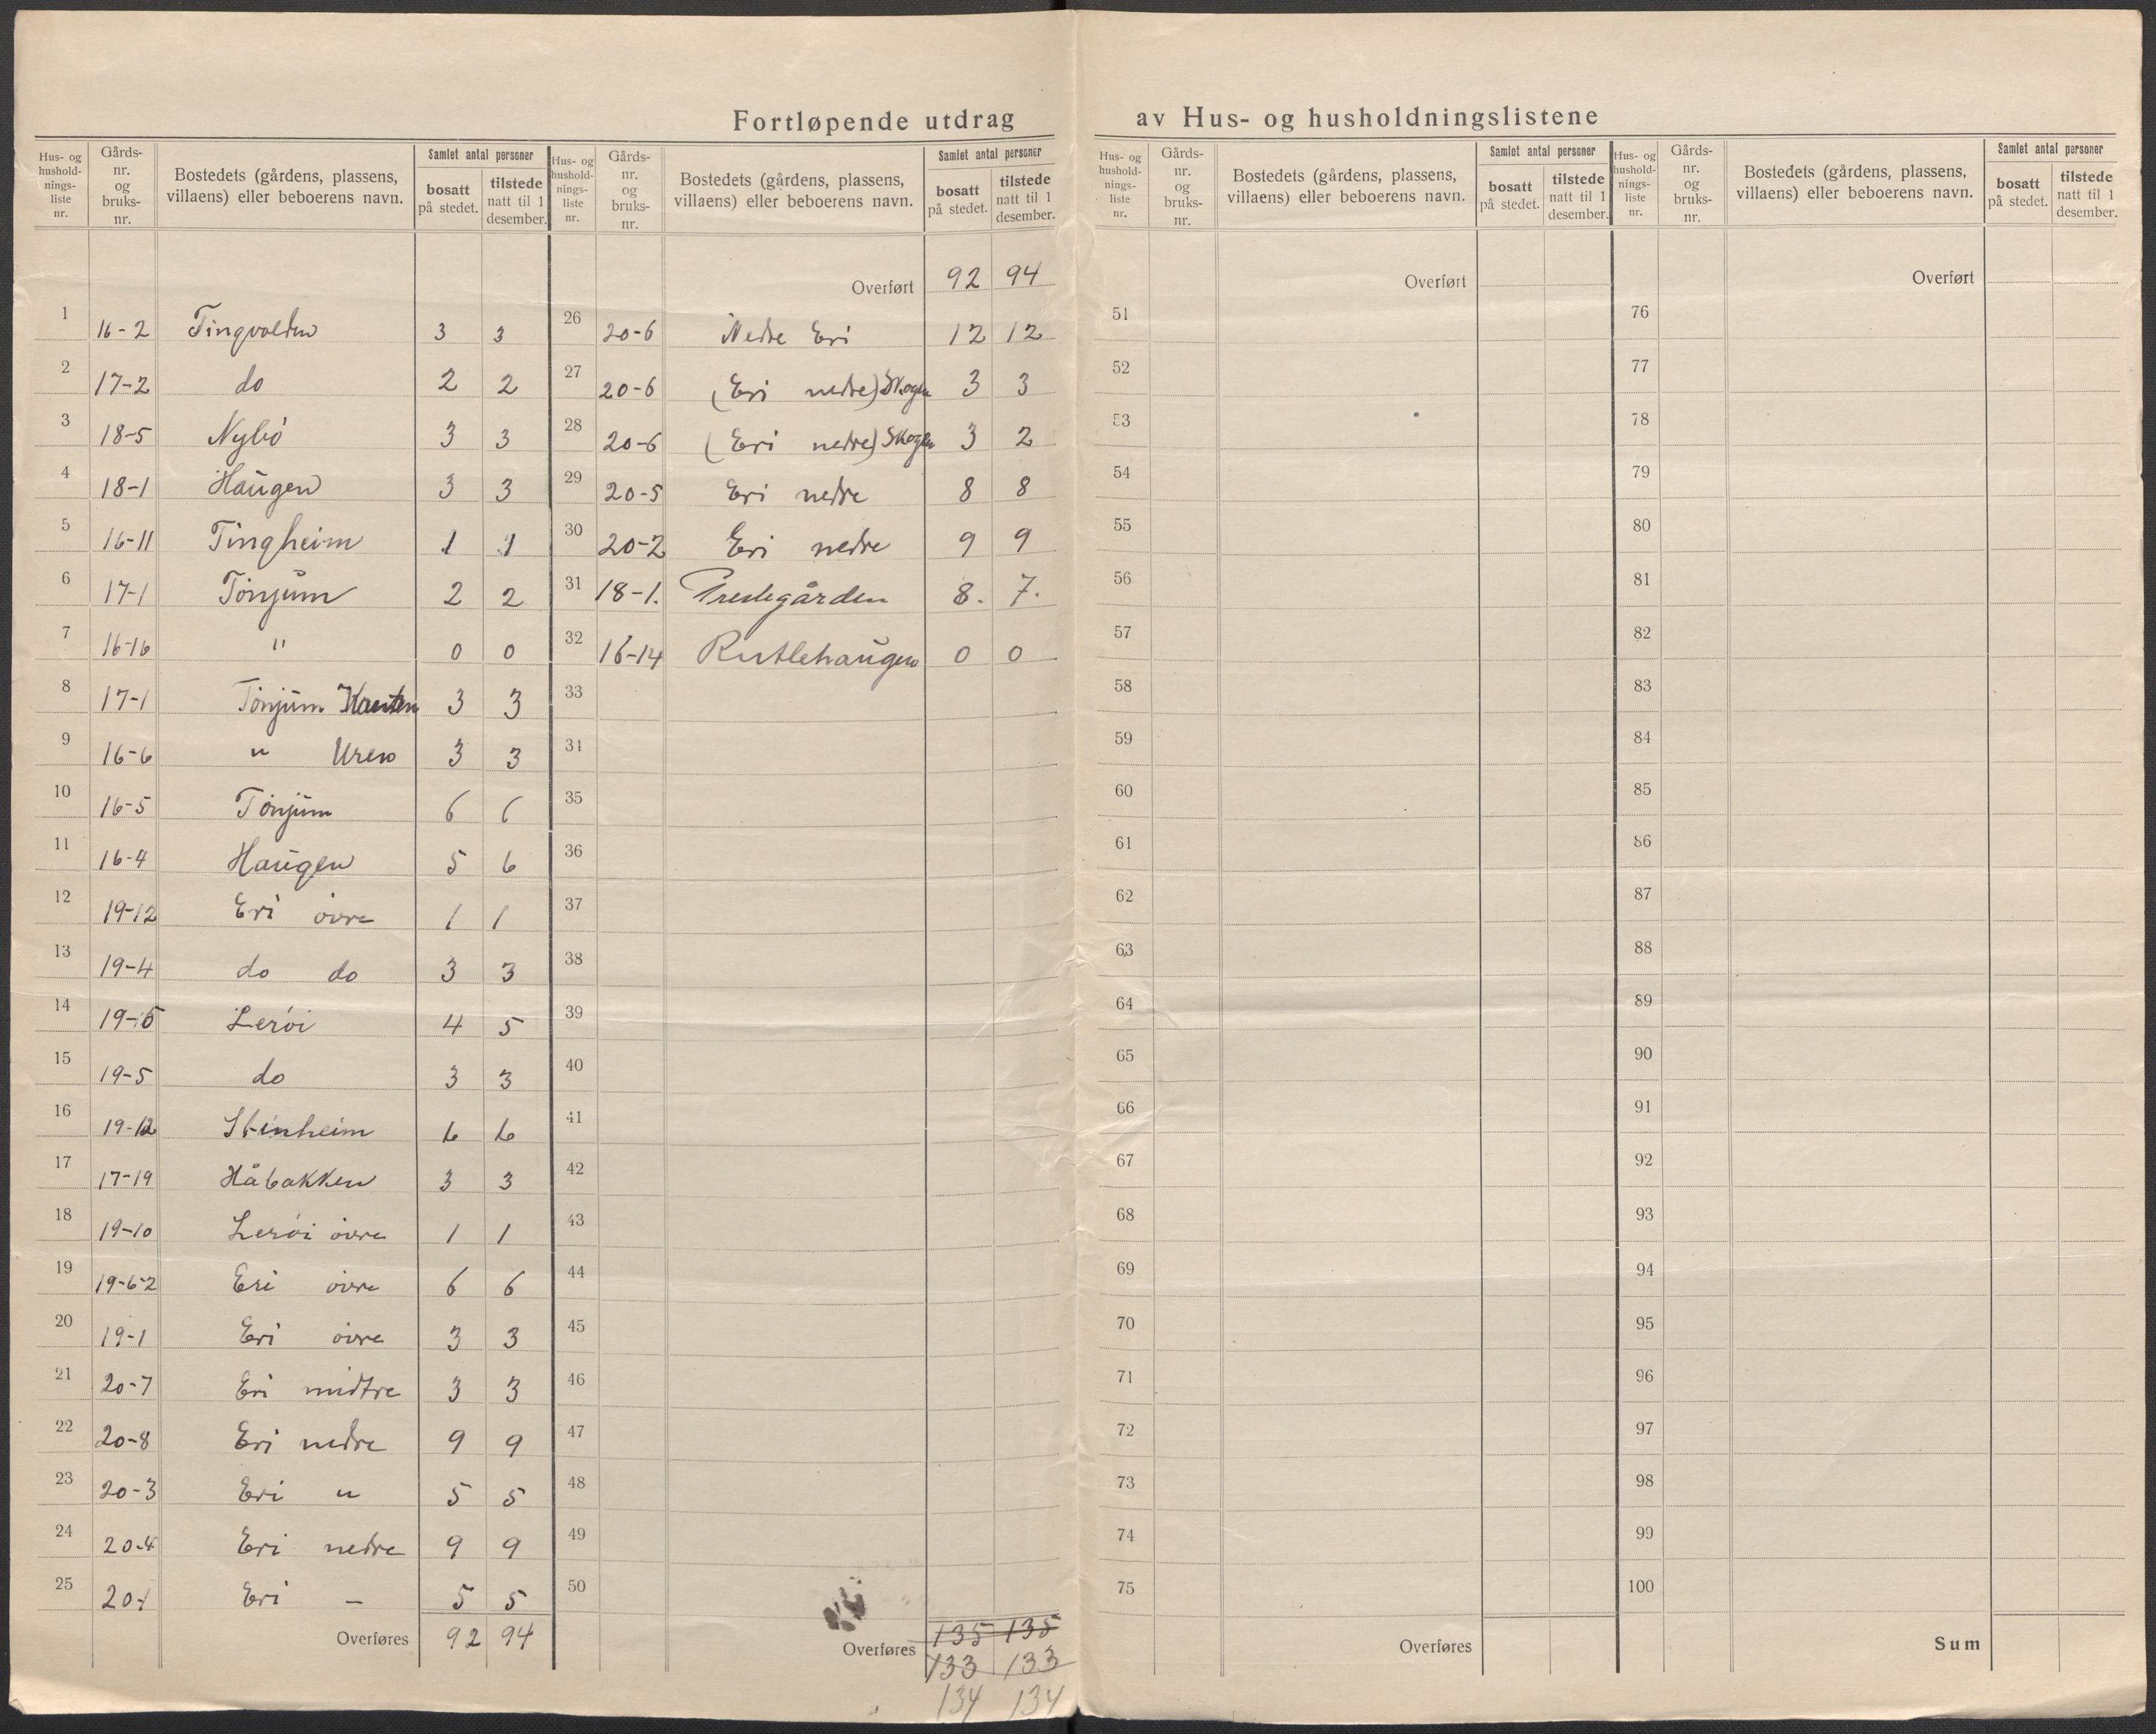 Fortløpende utdrag av Hus- og husholdningslistene
Hus- og husholdnings-liste nr. | Gårds-nr. og bruks-nr. | Bostedets (gårdens, plassens, villaens) eller beboerens navn. | Samlet antal personer | bosatt på stedet. | tilstede natt til 1 desember.
1 16-2 Tingvolden 3 3
2 17-2 do 2 2
3 18-5 Nybö 3 3
4 18-1 Haugen 3 3
5 16-11 Tingheim 1 1
6 17-1 Tönjum 2 2
7 16-16 " 0 0
8 17-1 Tönjum Kanten 3 3
9 16-6 " Uren 3 3
10 16-5 Tönjum 6 6
11 16-4 Haugen 5 6
12 19-12 Eri övre 1 1
13 19-4 do do 3 3
14 19-5 Leröi 4 5
15 19-5 do 3 3
16 19-12 Steinheim 6 6
17 17-19 Håbakken 3 3
18 19-10 Leröi övre 1 1
19 19-6-2 Eri övre 6 6
20 19-1 Eri övre 3 3
21 20-7 Eri midtre 3 3
22 20-8 Eri nedre 9 9
23 20-3 Eri " 5 5
24 20-4 Eri nedre 9 9
25 20-1 Eri – 5 5
Overføres 92 94
Hus- og husholdnings-liste nr. | Gårds-nr. og bruks-nr. | Bostedets (gårdens, plassens, villaens) eller beboerens navn. | Samlet antal personer | bosatt på stedet. | tilstede natt til 1 desember.
Overført 92 94
26 20-6 Nedre Eri 12 12
27 20-6 (Eri nedre) Skogen 3 3
28 20-6 (Eri nedre) Skogen 3 2
29 20-5 Eri nedre 8 8
30 20-2 Eri nedre 9 9
31 18-1. Prestegården 8. 7.
32 16-14 Rutlehaugen 0 0
33
31
35
36
37
38
39
40
41
42
43
44
45
46
47
48
49
50
Overføres 135 135
133 133
134 134
Hus- og husholdnings-liste nr. | Gårds-nr. og bruks-nr. | Bostedets (gårdens, plassens, villaens) eller beboerens navn. | Samlet antal personer | bosatt på stedet. | tilstede natt til 1 desember.
Overført
51
52
53
54
55
56
57
58
59
60
61
62
63
64
65
66
67
68
69
70
71
72
73
74
75
Overføres
Hus- og husholdnings-liste nr. | Gårds-nr. og bruks-nr. | Bostedets (gårdens, plassens, villaens) eller beboerens navn. | Samlet antal personer | bosatt på stedet. | tilstede natt til 1 desember.
Overført
76
77
78
79
80
81
82
83
84
85
86
87
88
89
90
91
92
93
94
95
96
97
98
99
100
Sum